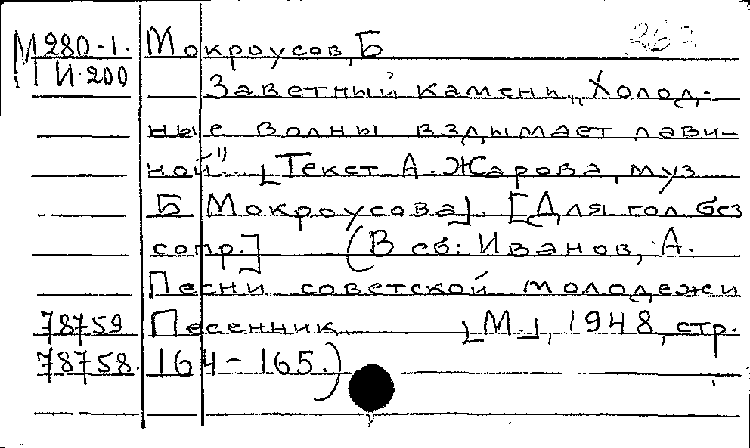 М 280-1. Мокроусов, Б 262
И-200 Заветный камень „Холод-
ные волны вздымает лави-
ной" [Текст А. Жарова, муз
Б Мокроусова]. [Для гол без
сопр.] (В сб: Иванов, А.
Песни советской молодежи
78759 Песенник [М.], 1948, стр.
78758. 164-165.)